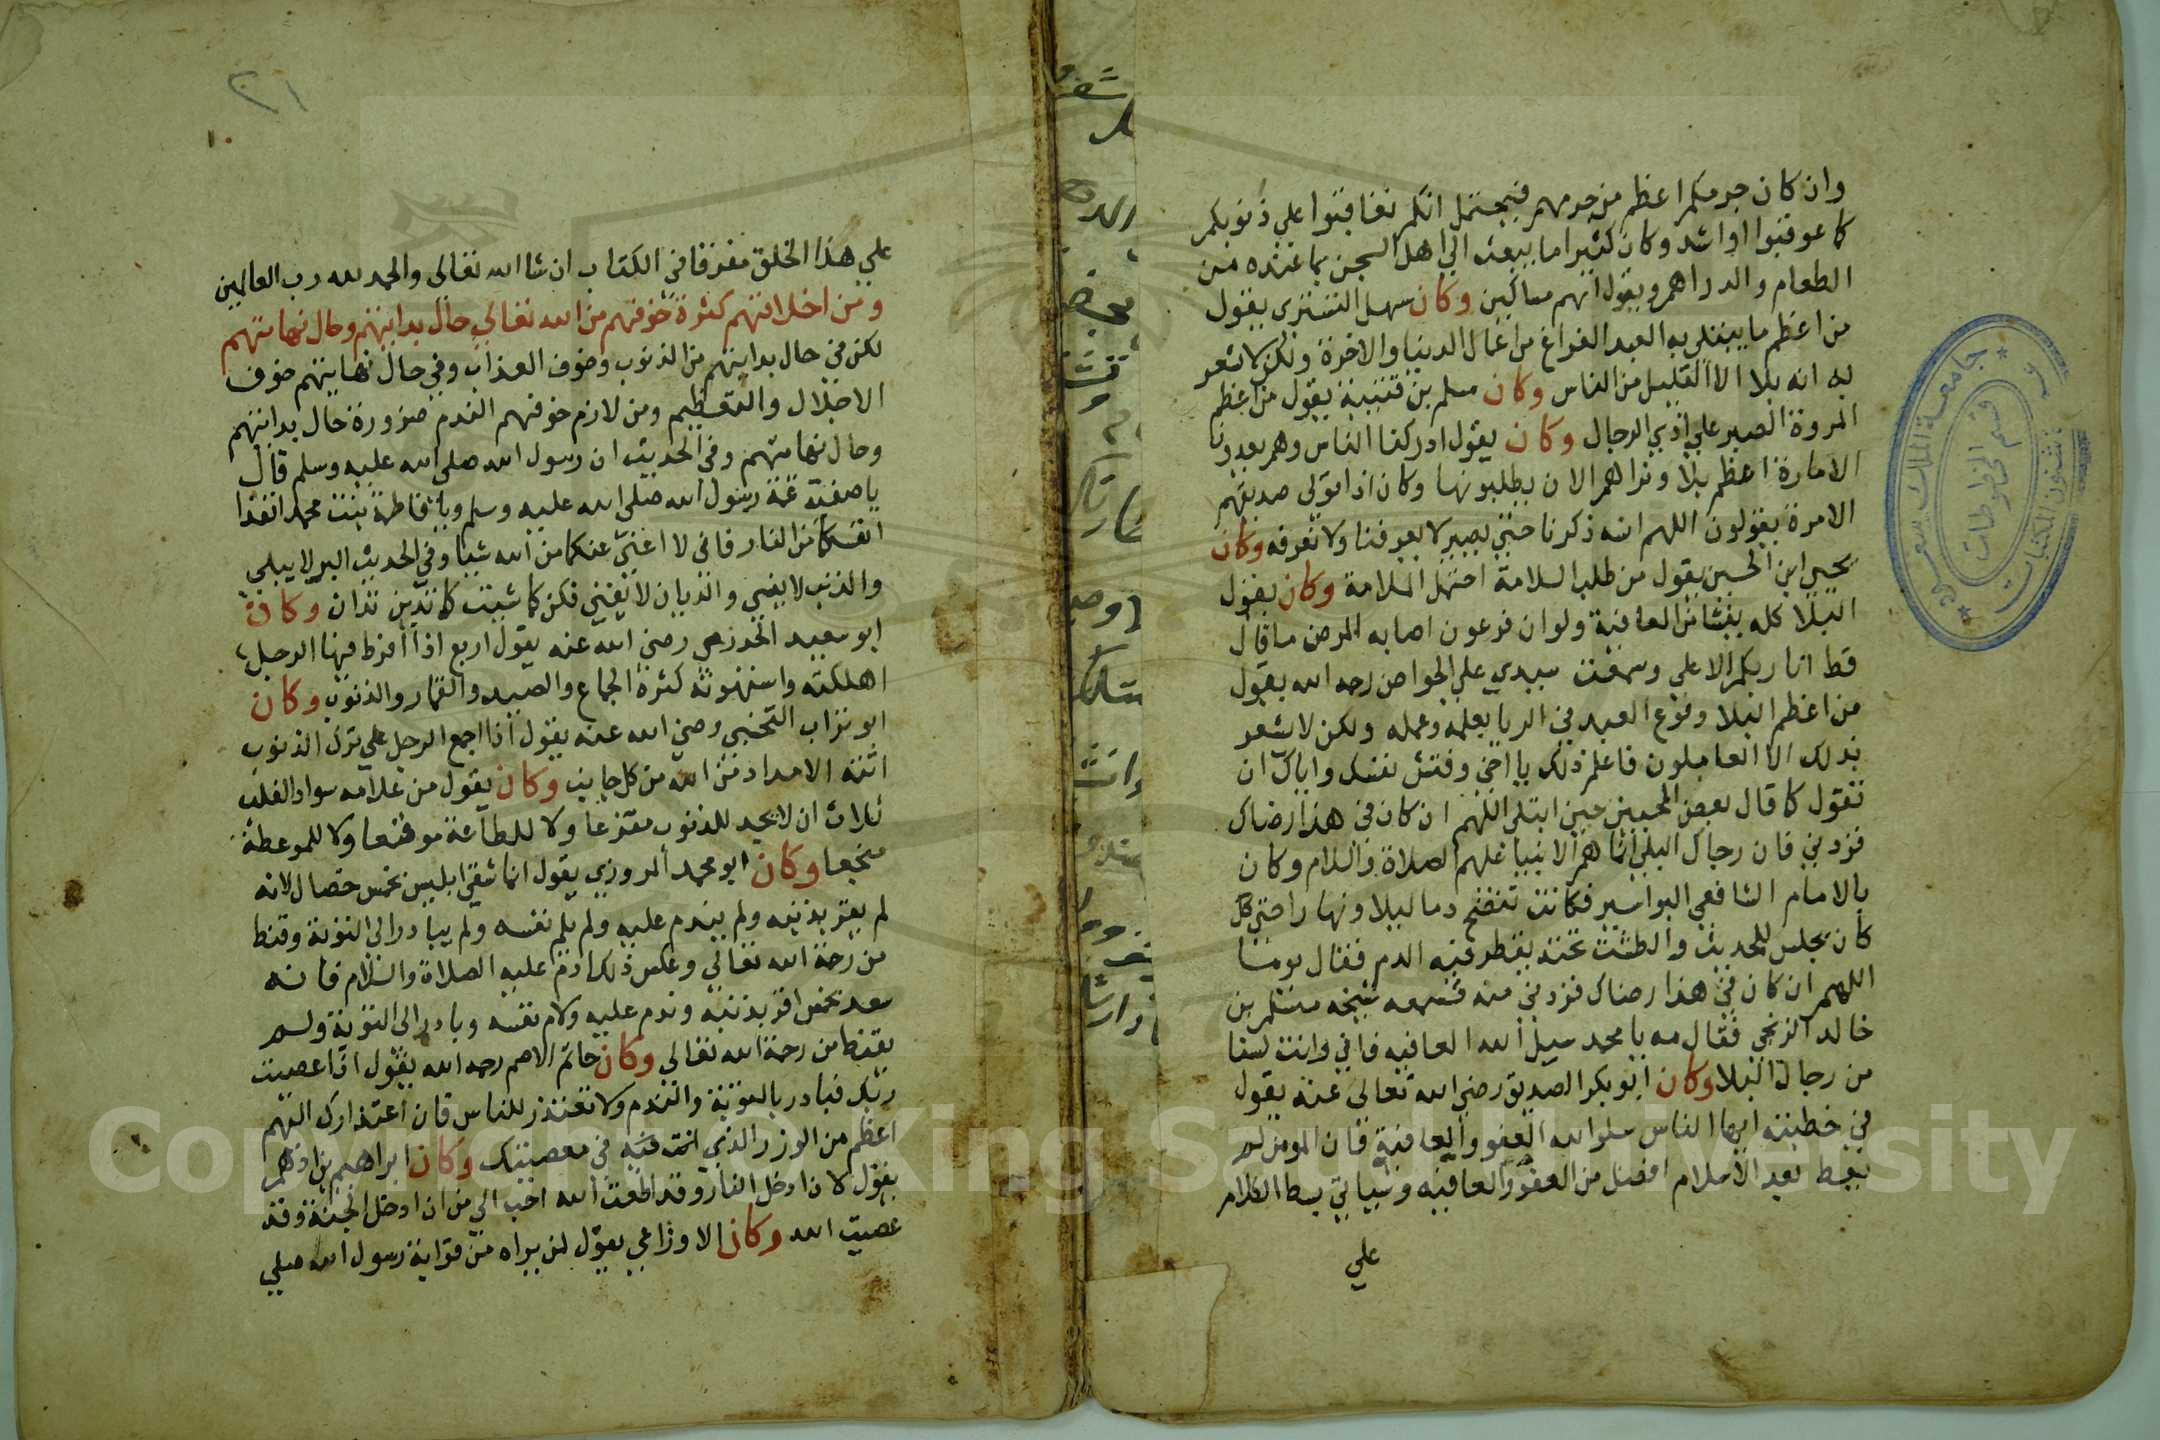 وان كان جرمكم اعظم من جرمهم فيحتمل انكم تعاقبوا علي ذنوبكم
كما عوقبوا او اشد وكان كثيرا ما يبعث الي اهل السجن بما عنده من
الطعام والدراهم ويقول انهم مساكين وكان سهل التستري يقول
من اعظم ما يبتلي به العبد الفراغ من اعمال الدنيا والاخرة ولكن لا يشعر
به انه بلا الا القليل من الناس وكان مسلم بن قتيبة يقول من اعظم
المروة الصبر علي اذي الرجال وكان يقول ادركنا الناس وهم يعدونا
الامارة اعظم بلا ونراهم الان يطلبونها وكان اذا تولى صديقهم
الامرة يقولون اللهم انسه ذكرنا حتي يصير لا يعرفنا ولا نعرفه وكان
يحيي ابن الحسين يقول من طلب السلامة احتمل الملامة وكان يقول
البلا كله ينشا من العافية ولو ان فرعون اصابه المرض ما قال
قط انا ربكم الاعلي وسمعت سيدي علي الخواص رحمه الله يقول
من اعظم البلا وقوع العبد في الريا بعلمه وعمله ولكن لا يشعر
بذلك الا العاملون فاعلم ذلك يا اخي وفتش نفسك واياك ان
تقول كما قال بعض المحبين حين ابتلي اللهم ان كان في هذا رضاك
فزدني فان رجال البلي انما هم الانبيا عليهم الصلاة والسلام وكان
بالامام الشافعي البواسير فكانت تنضح دما ليلا ونهارا حتي كل
كان يجلس للحديث والطشت تحته يقطر فيه الدم فقال يوما
اللهم ان كان في هذا رضاك فزدني منه فسمعه شيخه مسلم بن
خالد الزنجي فقال مه يا محمد سيل الله العافيه فاني وانت لسنا
من رجال البلا وكان ابو بكر الصديق رضي الله تعالى عنه يقول
في خطبته ايها الناس سلوا الله العفو والعافية فان المومن لم
يعط بعد الاسلام افضل من العفو والعافيه وسياتي بسط الكلام
علي
٢١
١٠
علي هذا الخلق مفرقا في الكتاب ان شا الله تعالى والحمد لله رب العالمين
ومن اخلاقهم كثرة خوفهم من الله تعالي حال بدايتهم وحال نهايتهم
لكن في حال بدايتهم من الذنوب وخوف العذاب وفي حال نهايتهم خوف
الاجلال والتعظيم ومن لازم خوفهم الندم ضرورة حال بدايتهم
وحال نهايتهم وفي الحديث ان رسول الله صلى الله عليه وسلم قال
يا صفية عمة رسول الله صلى الله عليه وسلم ويا فاطمة بنت محمد انقذا
انفسكما من النار فاني لا اغني عنكما من الله شيا وفي الحديث البر لا يبلي
والذنب لا يفني والديان لا يفني فكن كما شيت كما تدين تدان وكان
ابو سعيد الخدري رضي الله عنه يقول اربع اذا افرط فيها الرجل
اهلكته واستهوته كثرة الجماع والصيد والقمار والذنوب وكان
ابو تراب النخشبي رضي الله عنه يقول اذا اجمع الرجل علي ترك الذنوب
اتته الامداد من الله من كل جانب وكان يقول من علامه سواد القلب
ثلاث ان لا يجد للذنوب مفزعا ولا للطاعة موقعا ولا للموعظة
منجعا وكان ابو محمد المروزي يقول انما شقي ابليس بخمس خصال لانه
لم يقر بذنبه ولم يندم عليه ولم يلم نفسه ولم يبادر الى التوبة وقنط
من رحمة الله تعالي وعكس ذلك ادم عليه الصلاة والسلام فانه
سعد بخمس اقر بذنبه وندم عليه ولام نفسه وبادر الى التوبة ولم
يقنط من رحمة الله تعالى وكان حاتم الاصم رحمه الله يقول اذا عصيت
ربك فبادر بالتوبة والندم ولا تعتذر للناس فان اعتذارك اليهم
اعظم من الوزر الذي انت فيه في معصيتك وكان ابراهيم بن ادهم
يقول لان ادخل النار وقد اطعت الله احب الي من ان ادخل الجنة وقد
عصيت الله وكان الاوزاعي يقول لمن يراه من قرابة رسول الله صلي
جامعة الملك سعود
قسم المخطوطات
شئون المكتبات
Copyright © King Saud University